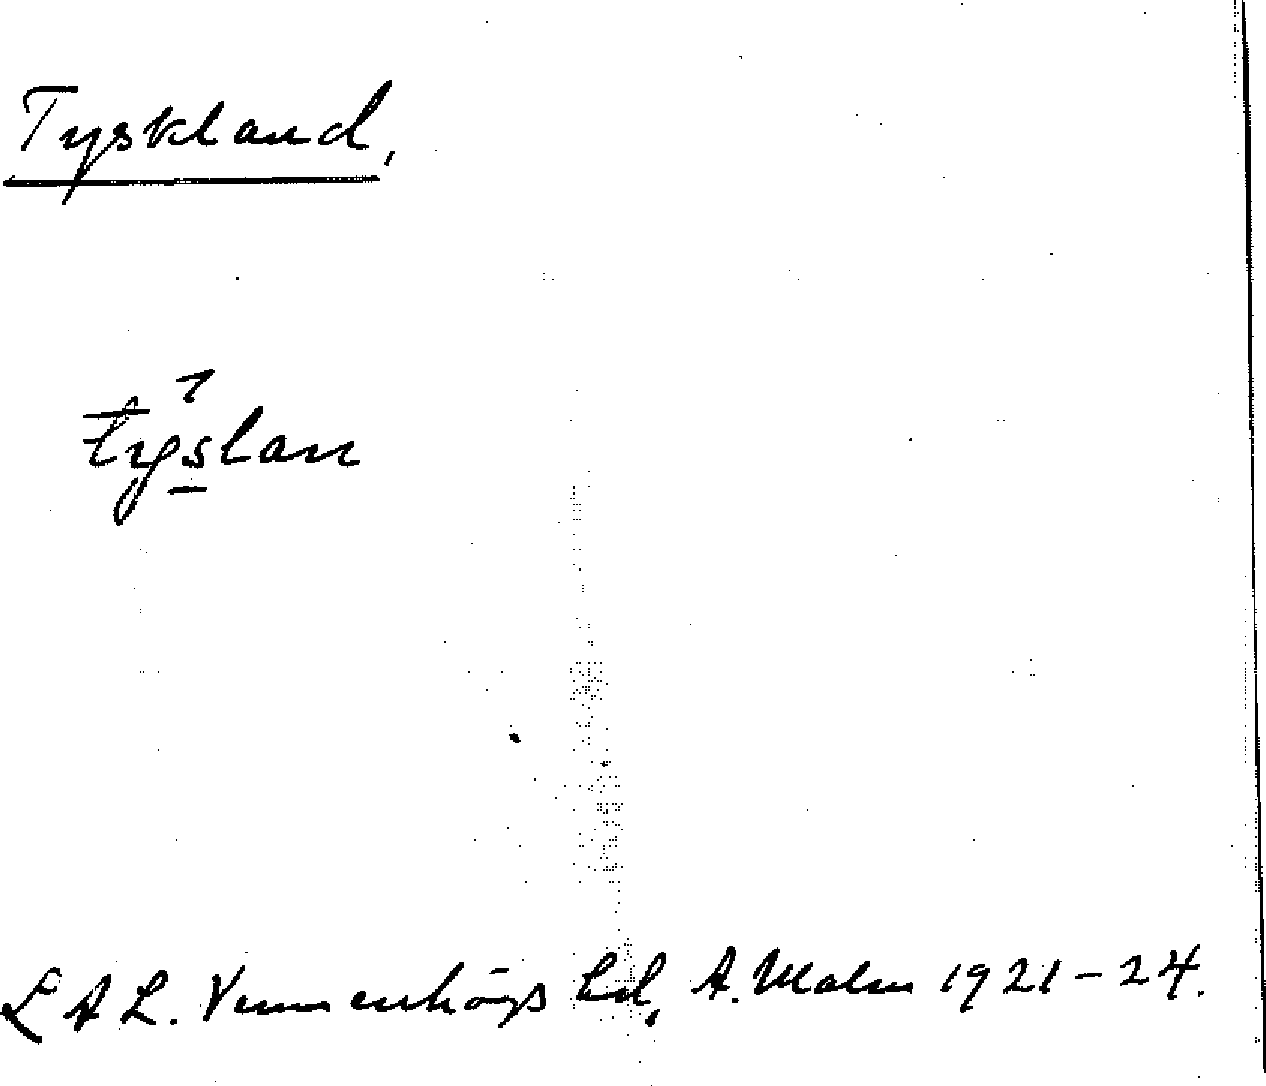 Tyskland,
tyslan
L A L. Vemmenhögs hd, A. Malm 1921-24.